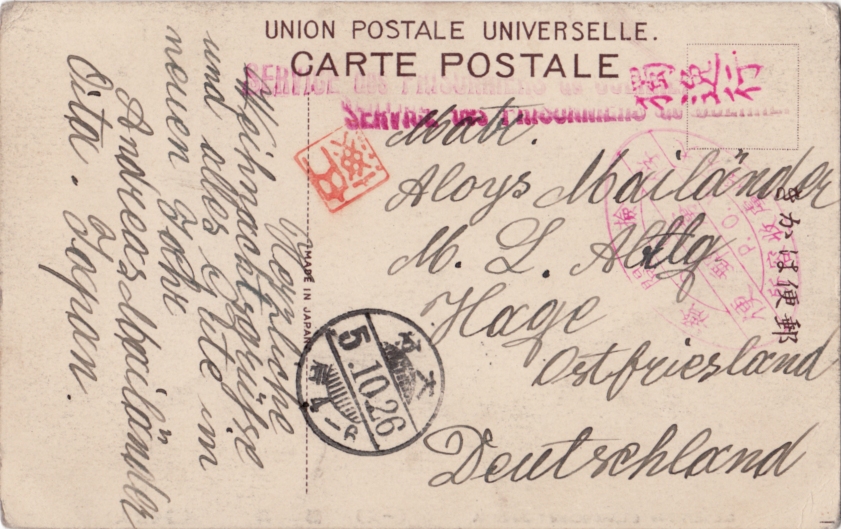 UNION POSTALE UNIVERSELLE.
CARTE POSTALE
SERVICE DES PRISONNIERS DE GUERRE.
SERVICE DES PRISONNIERS DE GUERRE.
きかは便郵
MADE IN JAPAN
Matr.
Aloys Mailänder
M. L. Abtlg
Hage
Ostfriesland
Deutschland
Herzliche
Weihnachtsgrüße
und alles Gute im
neuen Jahr
Andreas Mailänder
Oita. Japan.
大分
5.10.26